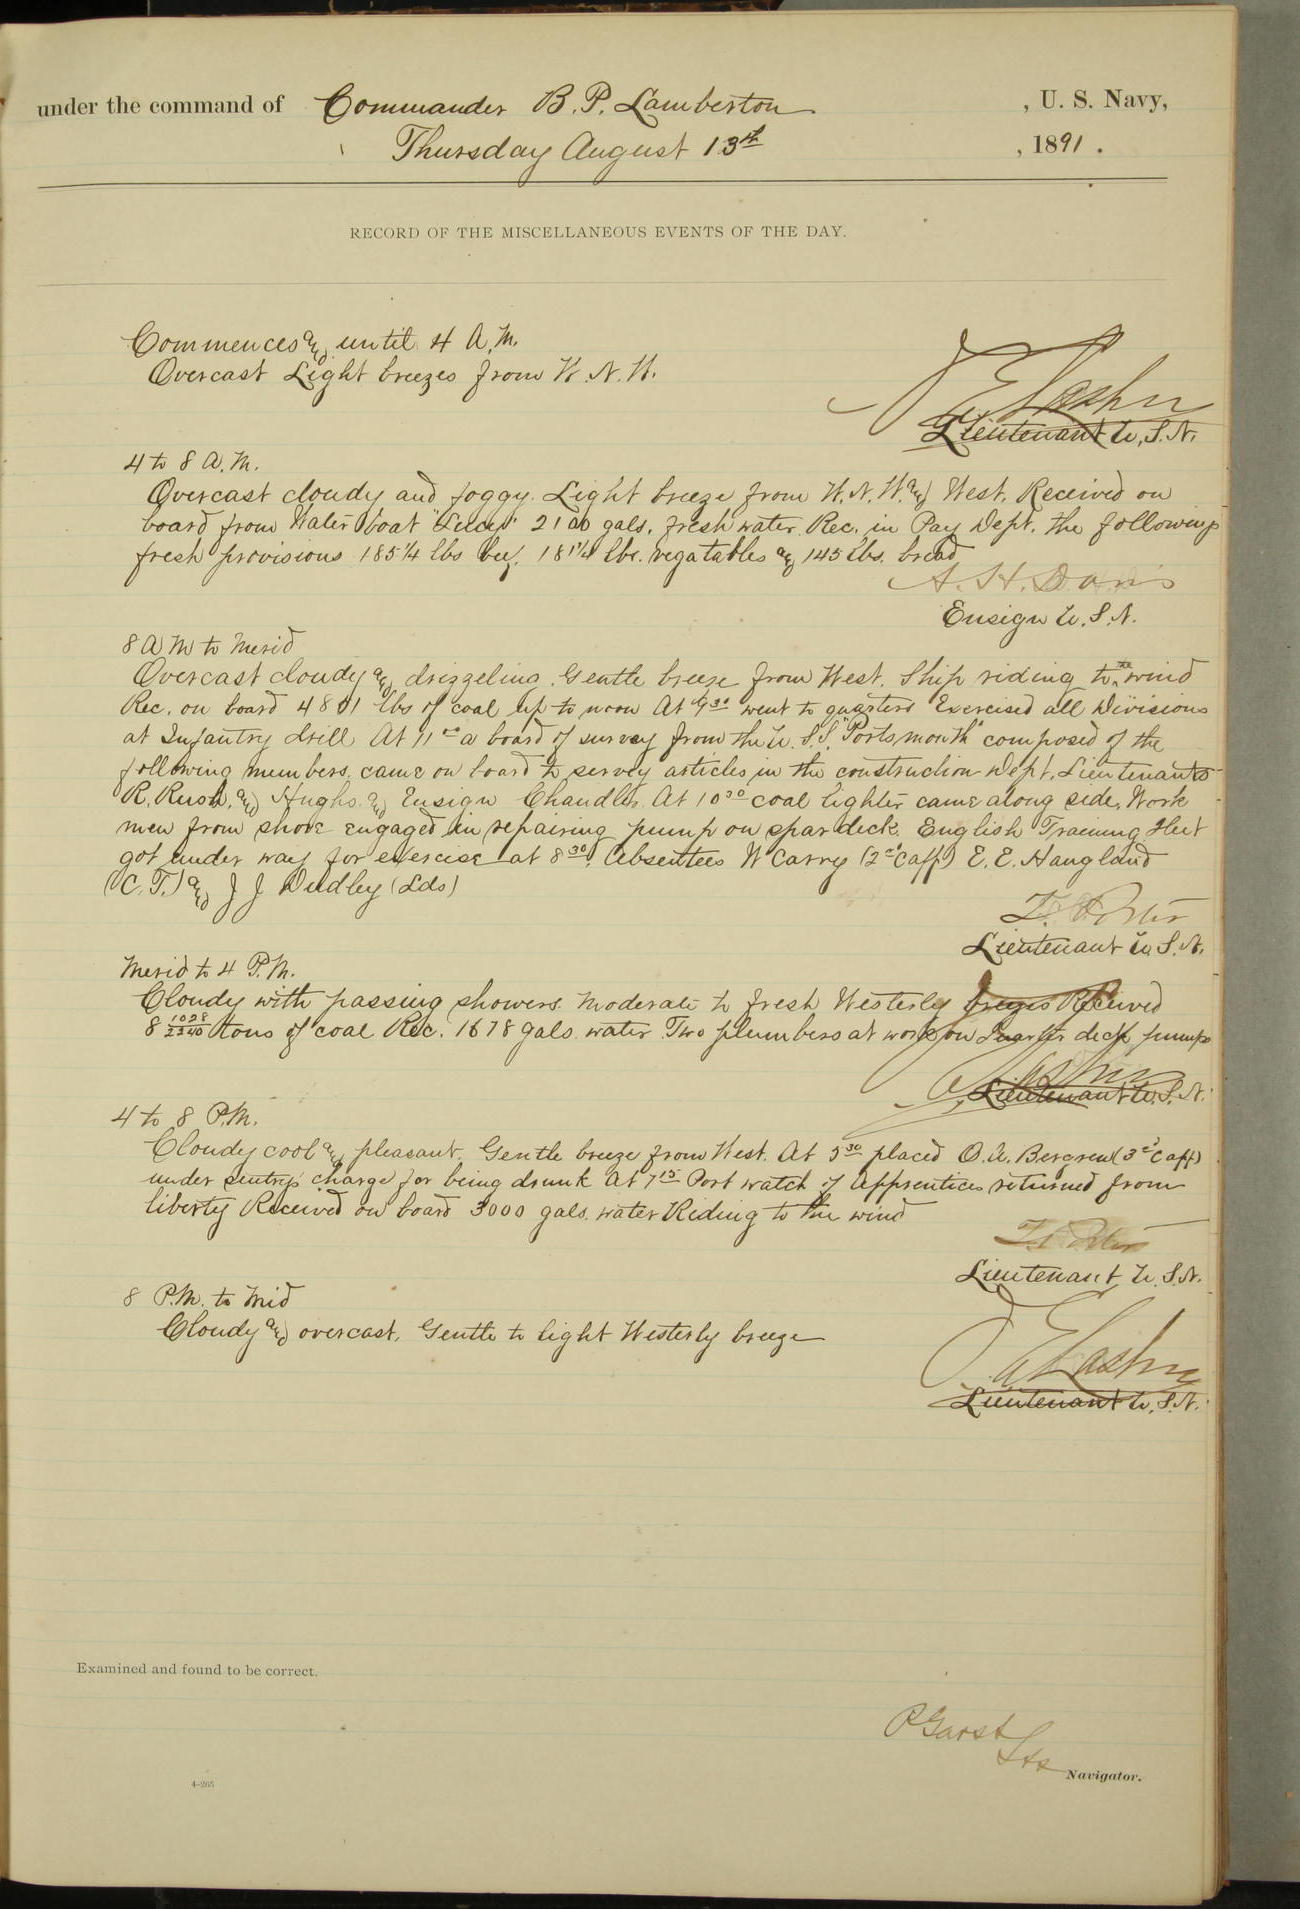 under the command of Commander B. P. Lamberton , U. S. Navy,
Thursday August 13th , 1891 .
RECORD OF THE MISCELLANEOUS EVENTS OF THE DAY.
Commences and until 4 A.M.
Overcast Light breezes from W. N. W.
Lieutenant U.S.N.
4 to 8 A.M.
Overcast cloudy and foggy. Light breeze from W. N. W. and West. Received on
board from Water boat 2100 gals. fresh water. Rec. in Pay Dept. the following
fresh provisions 185 1/4 lbs beef. 181 1/4 lbs. vegatables and 145 lbs. bread
A. H. Davis
Ensign U.S.N.
8 A M to Merid
Overcast cloudy and drizzeling. Gentle breeze from West. Ship riding to the wind
Rec. on board 4801 lbs of coal up to noon At 9 30 went to quarters Exercised all Divisions
at Infantry drill At 11 00 a board of survey from the U. S. S. "Portsmouth" composed of the
following members. came on board to servey articles in the construction Dept. Lieutenants
R. Rush, and Hughs. and Ensign Chandler. At 10 30 coal lighter came along side. Work
men from shore engaged in repairing pump on spar deck. English Training Fleet
got under way for exercise at 8 30. Absentees W Carry (2nd C aft) E. E. Haugland
(C. T.) and J J Dudley (Lds)
T. Porter
Lieutenant U.S.N.
Merid to 4 P.M.
Cloudy with passing showers. Moderate to fresh Westerly breezes Received
8 1028/2240 tons of coal Rec. 1678 gals. water Two plumbers at work on Quarter deck pumps
Lieutenant U.S.N.
4 to 8 P.M.
Cloudy cool and pleasant. Gentle breeze from West. At 5 30 placed O. A. Bergren (3rd C aft)
under sentrys charge for being drunk At 7 15 Port watch of Apprentices returned from
liberty Received on board 3000 gals. water Riding to the wind
Lieutenant U.S.N.
8 P.M. to Mid
Cloudy and overcast. Gentle to light Westerly breeze
Lieutenant U.S.N.
Examined and found to be correct.
P Garst
Navigator.
4-265